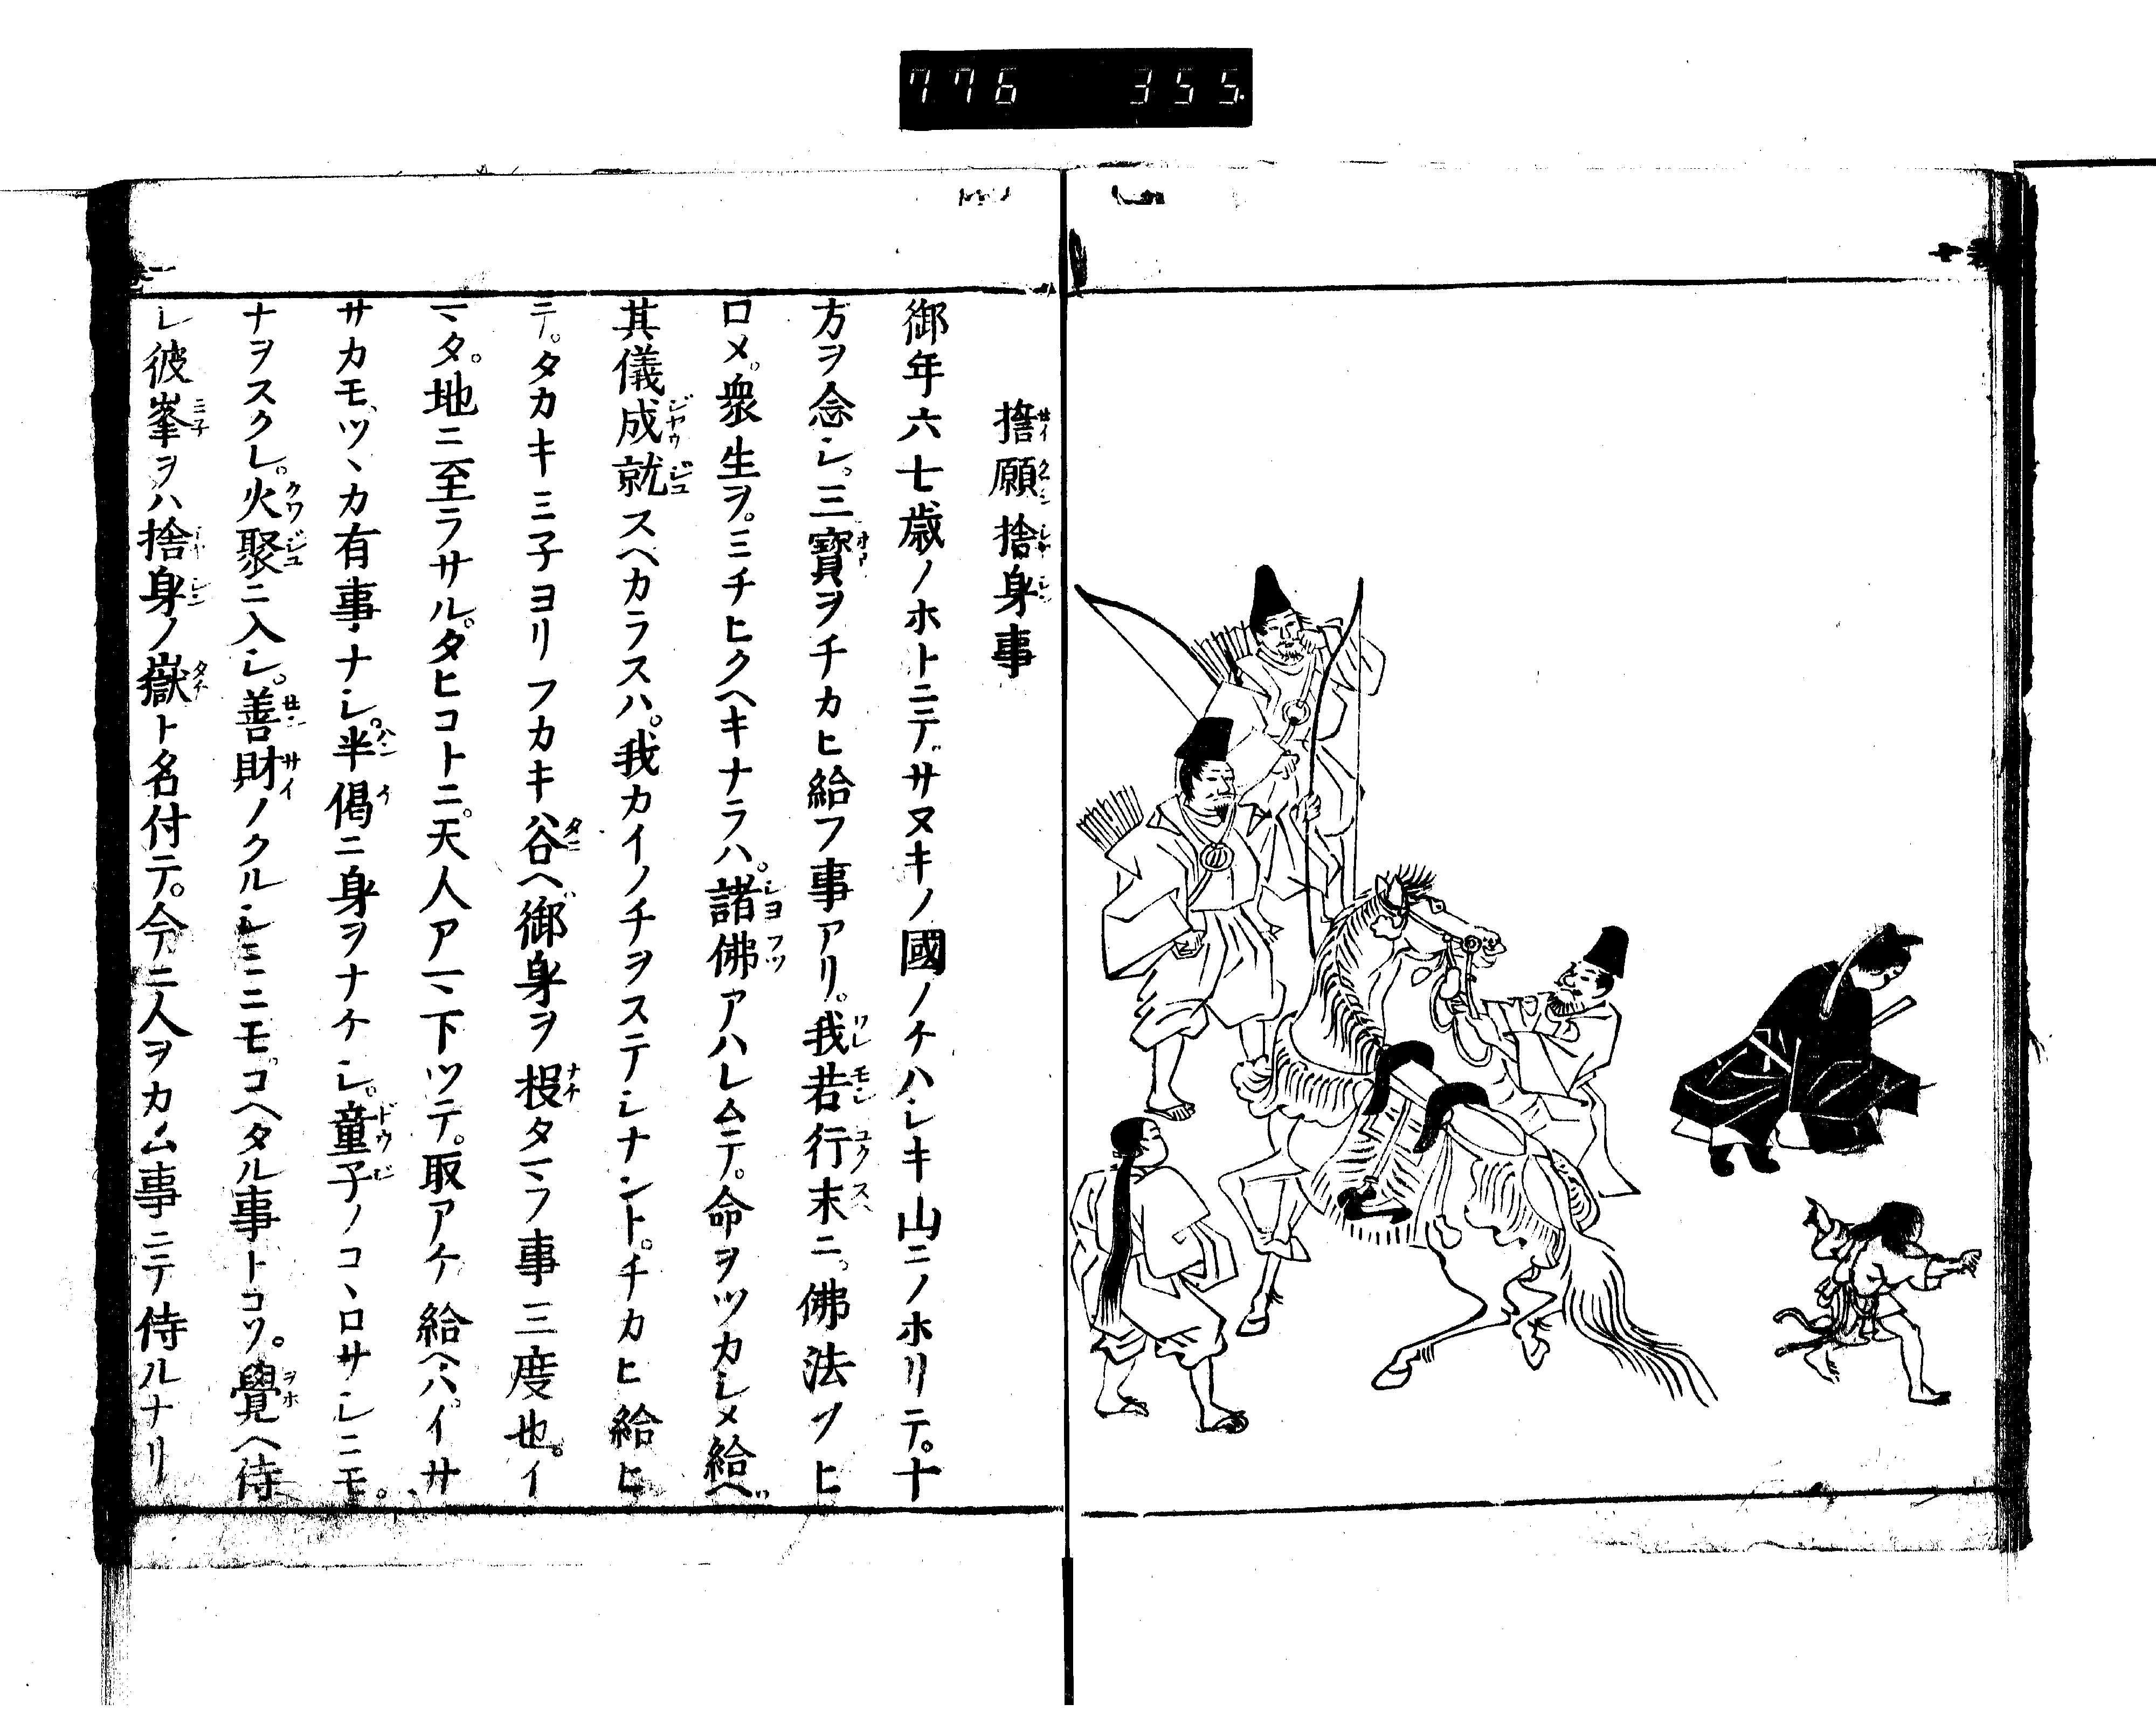 776 355
誓願捨身事
御年六七歳ノホトニテ゛サヌキノ國ノチハシキ山ニノホリテ。十
方ヲ念シ。三寶ヲチカヒ給フ事アリ。我若行末ニ。佛法ヲヒ
ロメ。衆生ヲ。ミチヒクヘキナラハ。諸佛アハレムテ。命ヲツカシメ給ヘ゛
其儀成就スヘカラスハ。我カイノチヲステシナント。チカヒ給ヒ
テ。タカキミ子ヨリフカキ谷ヘ御身ヲ投タマフ事三度也。イ
マタ。地ニ至ラサル。タヒコトニ。天人アマ下ツテ。取アケ給ヘハ。イサ
サカモ、ツヽカ有事ナシ。半偈ニ身ヲナケシ。童子ノコヽロサシニモ。
ナヲスクレ。火聚ニ入シ。善財ノクルシミニモ。コヘタル事トコソ。覺ヘ侍
レ彼峯ヲハ捨身ノ嶽ト名付テ。今ニ人ヲカム事ニテ侍ルナリ